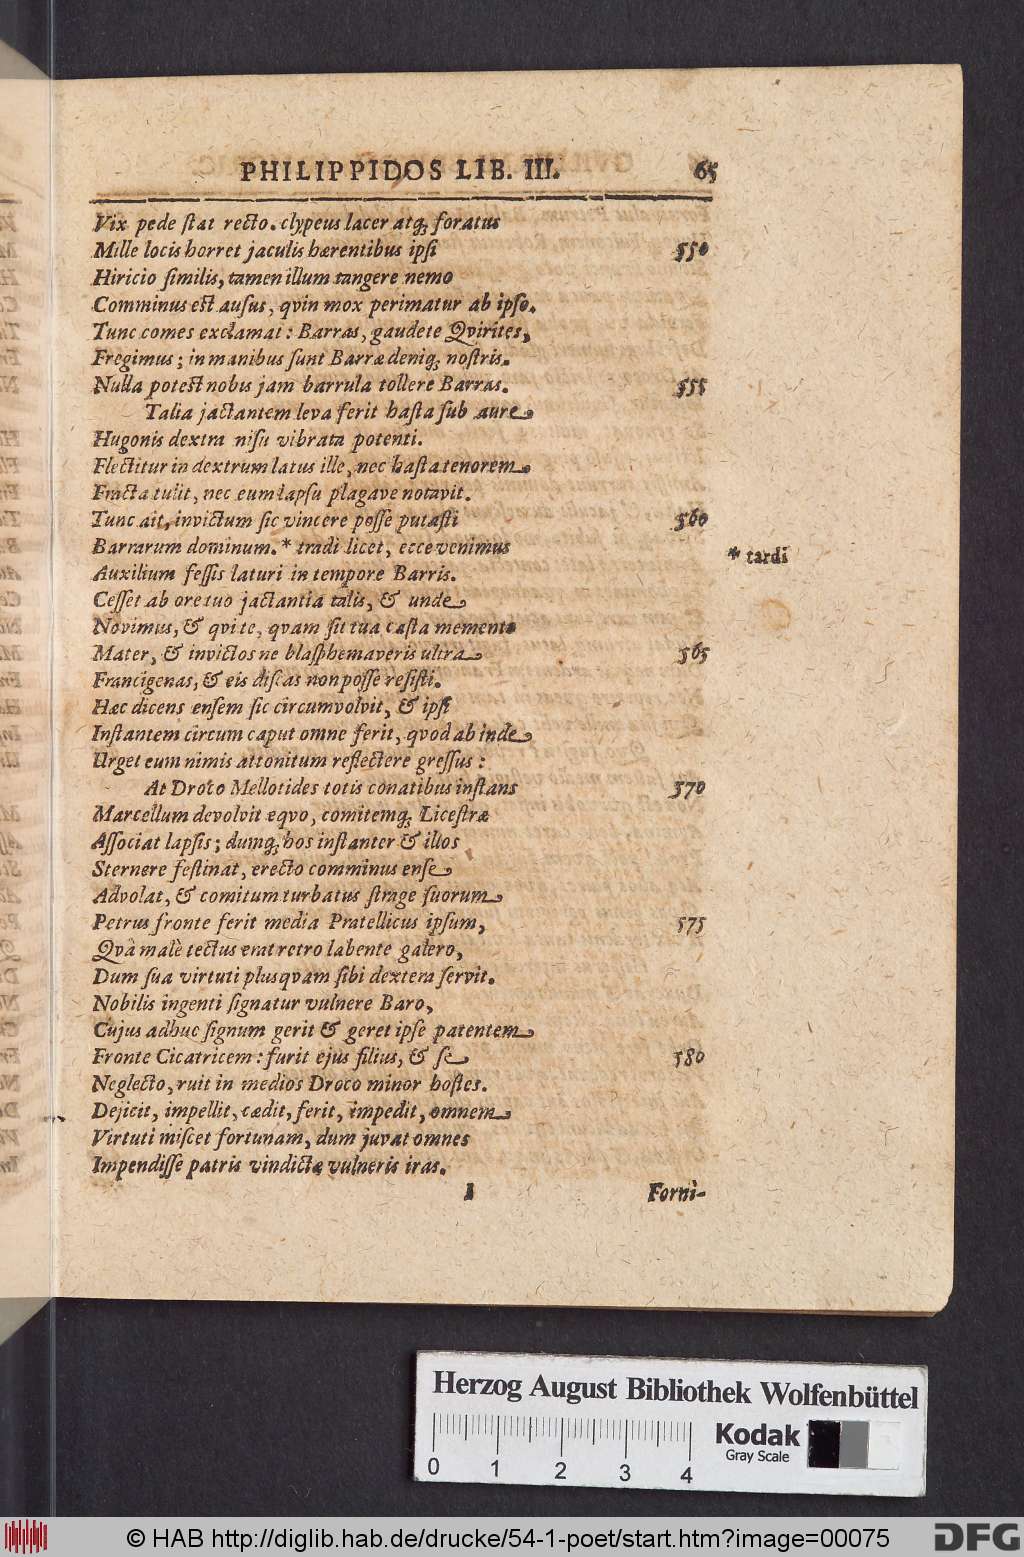 PHILIPPIDOS LIB. III. 65
Vix pede ſtat recto. clypeus lacer atq; foratus
Mille locis horret jaculis hærentibus ipſi 550
Hiricio ſimilis, tamen illum tangere nemo
Comminus eſt auſus, qvin mox perimatur ab ipſo.
Tunc comes exclamat: Barras, gaudete Qvirites,
Fregimus; in manibus ſunt Barræ deniq; noſtris.
Nulla poteſt nobis jam barrula tollere Barras. 555
Talia jactantem leva ferit haſta ſub aure
Hugonis dextra niſu vibrata potenti.
Flectitur in dextrum latus ille, nec haſta tenorem
Fracta tulit, nec eum lapſu plagave notavit.
Tunc ait, invictum ſic vincere poſſe putaſti 560
Barrarum dominum. * tradi licet, ecce venimus
* tardi
Auxilium feſſis laturi in tempore Barris.
Ceſſet ab ore tuo jactantia talis, & unde
Novimus, & qvi te, qvam ſit tua caſta memento
Mater, & invictos ne blaſphemaveris ultra 565
Francigenas, & eis diſcas non poſſe reſiſti.
Hæc dicens enſem ſic circumvolvit, & ipſi
Inſtantem circum caput omne ferit, qvod ab inde
Urget eum nimis attonitum reflectere greſſus:
At Droco Mellotides totis conatibus inſtans 570
Marcellum devolvit eqvo, comitemq; Liceſtræ
Aſſociat lapſis; dumq; hos inſtanter & illos
Sternere feſtinat, erecto comminus enſe
Advolat, & comitum turbatus ſtrage ſuorum
Petrus fronte ferit media Pratellicus ipſum, 575
Qvà malè tectus erat retro labente galero,
Dum ſua virtuti plusqvam ſibi dextera ſervit.
Nobilis ingenti ſignatur vulnere Baro,
Cujus adhuc ſignum gerit & geret ipſe patentem
Fronte Cicatricem: furit ejus filius, & ſe 580
Neglecto, ruit in medios Droco minor hoſtes.
Dejicit, impellit, cædit, ferit, impedit, omnem
Virtuti miſcet fortunam, dum juvat omnes
Impendiſſe patris vindictæ vulneris iras.
I Forni-
Herzog August Bibliothek Wolfenbüttel
Kodak
Gray Scale
0 1 2 3 4
© HAB http://diglib.hab.de/drucke/54-1-poet/start.htm?image=00075
DFG